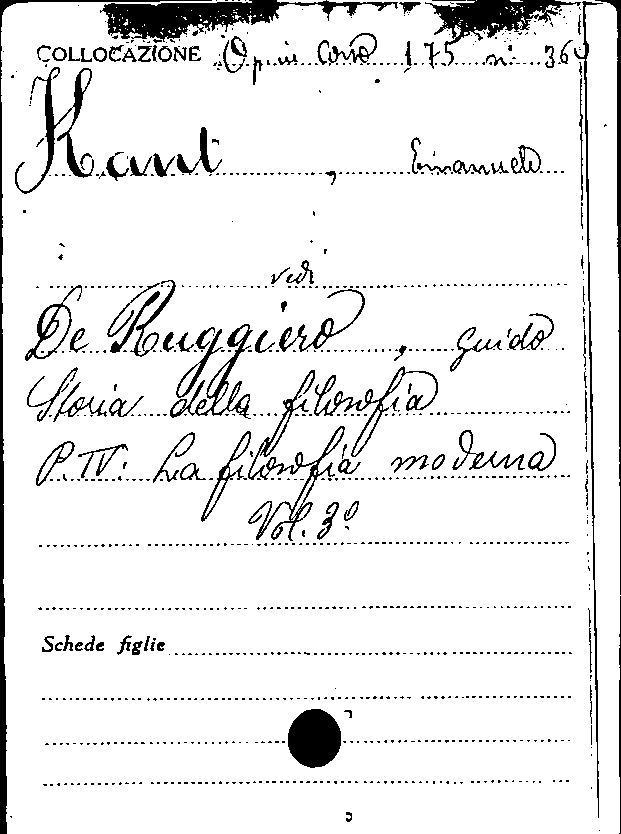 COLLOCAZIONE Op. in Corso 175 n. 36
Kant, Emanuele
vedi
De Ruggiero, Guido
Storia della filosofia
P. IV: La filosofia moderna
Vol. 3º
Schede figlie